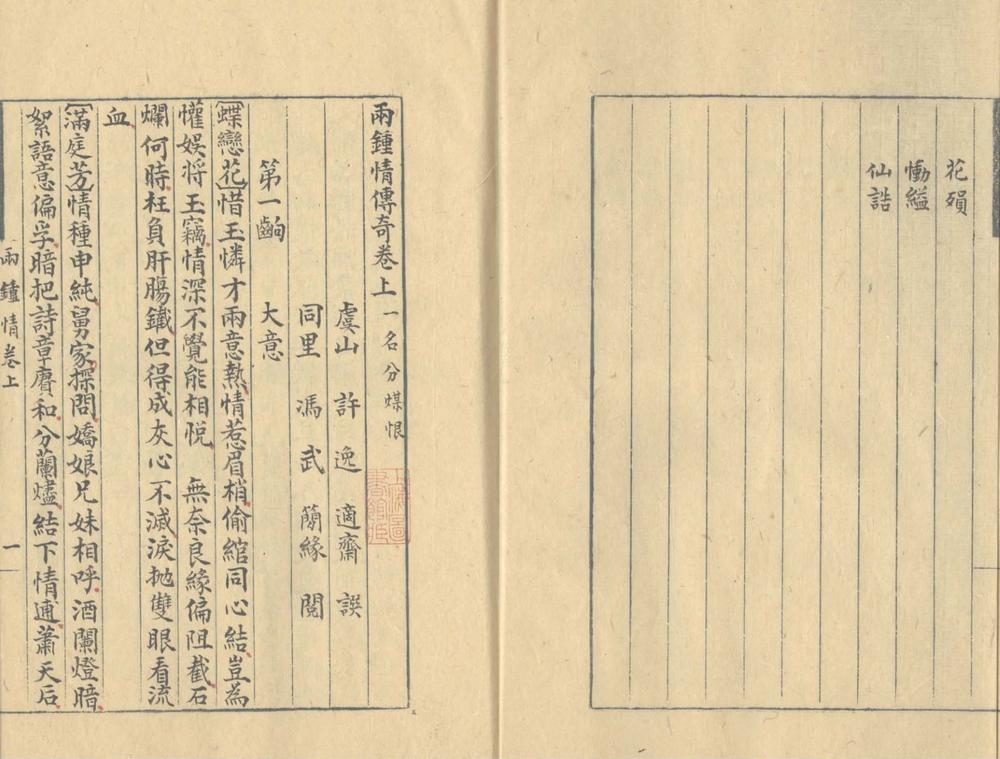 花殞
慟縊
仙誥
兩鍾情傳奇卷上 一名分媒恨
虞山 許逸 適齋 誤
同里 馮武 簡緣 閱
第一齣 大意
〔蝶戀花〕惜玉憐才兩意熱情惹眉梢偷綰同心結豈為
懽娱将玉竊情深不覺能相悦 無奈良緣偏阻截石
爛何時枉負肝腸鐵但得成灰心不滅淚抛雙眼看流
血
〔滿庭芳〕情種申純舅家探問嬌娘兄妹相呼酒闌燈暗
絮語意偏孚暗把詩章賡和分蘭燼結下情逋蕭天后
兩鍾情卷上 一
上海圖書館藏